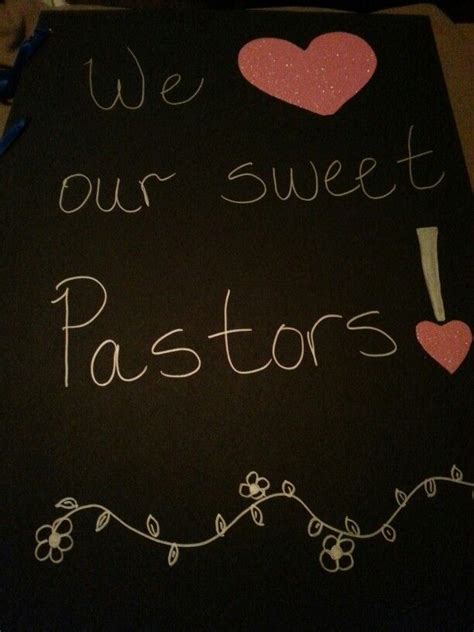 We
our sweet
Pastors!